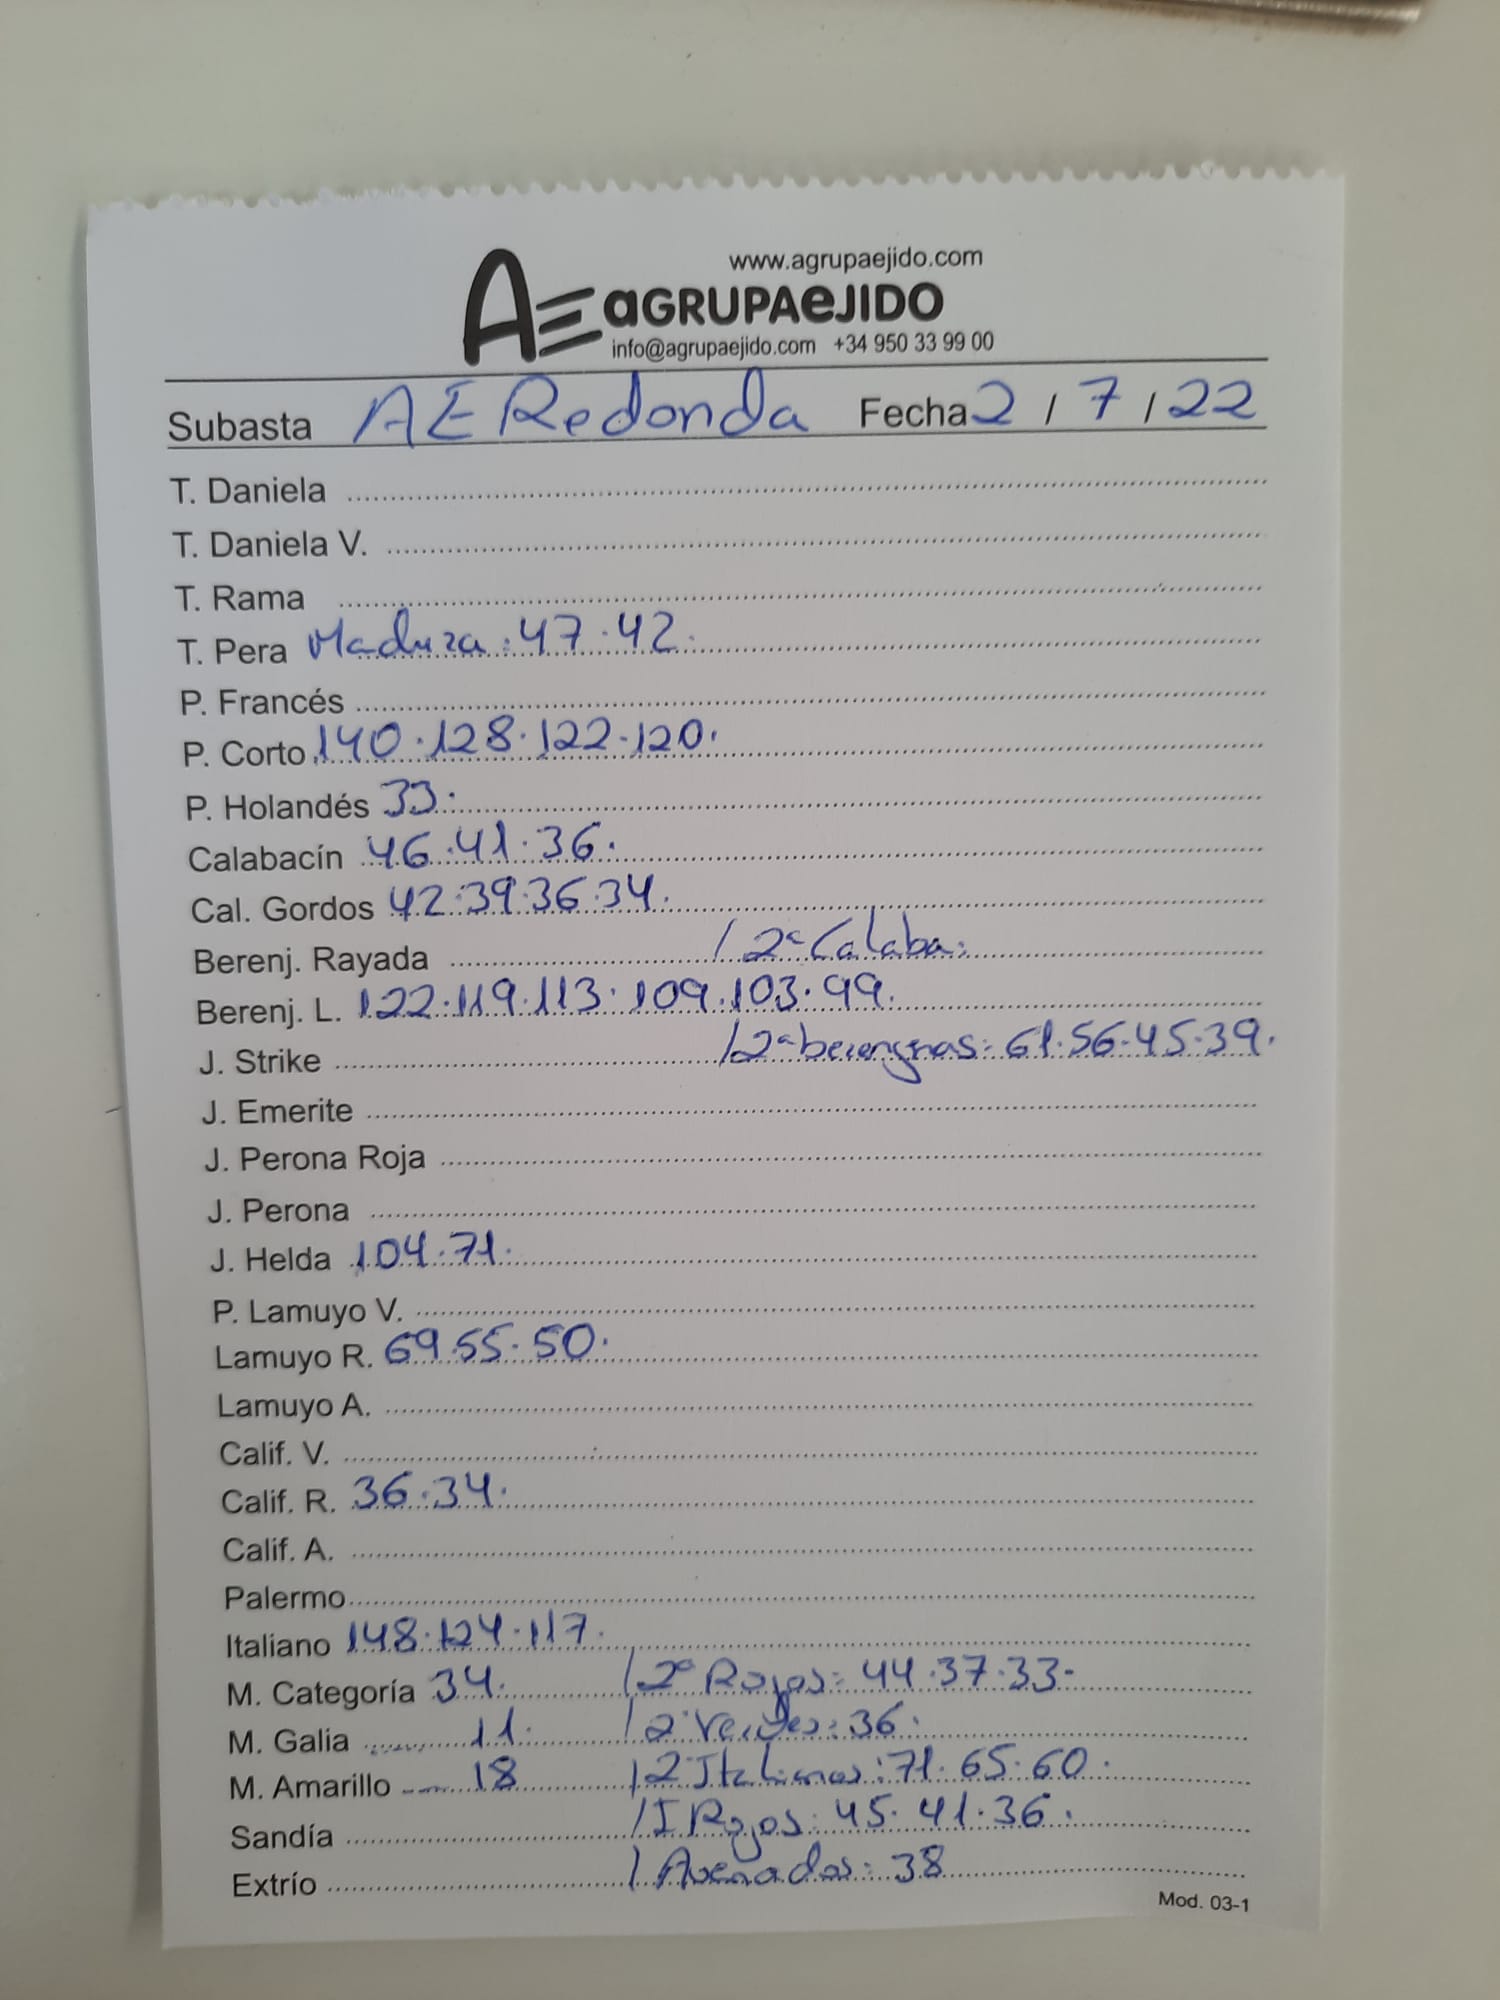 www.agrupaejido.com
AE aGRUPAeJIDO
info@agrupaejido.com +34 950 33 99 00
Subasta AE Redonda Fecha 2 / 7 / 22
T. Daniela
T. Daniela V.
T. Rama
T. Pera Madura: 47.42.
P. Francés
P. Corto 140.128.122.120.
P. Holandés 33.
Calabacín 46.41.36.
Cal. Gordos 42.39.36.34.
Berenj. Rayada / 2ª Calaba:
Berenj. L. 122.119.113.109.103.99.
J. Strike / 2ª berengnas: 61.56.45.39.
J. Emerite
J. Perona Roja
J. Perona
J. Helda 104.71.
P. Lamuyo V.
Lamuyo R. 69.55.50.
Lamuyo A.
Calif. V.
Calif. R. 36.34.
Calif. A.
Palermo
Italiano 148.124.117.
M. Categoría 34. / 2ª Rojos: 44.37.33-
M. Galia 11. / 2ª Verdes: 36.
M. Amarillo 18 / 2ª Italianos: 71.65.60.
Sandía / I Rojos: 45.41.36.
Extrío / Asenados: 38
Mod. 03-1